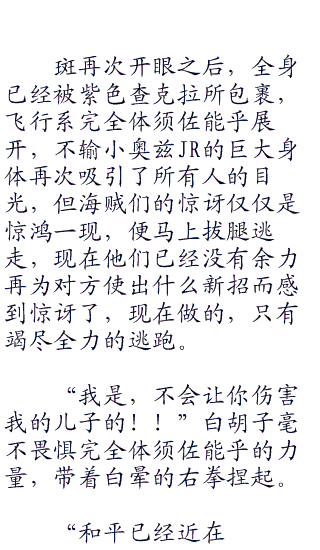 斑再次开眼之后，全身
已经被紫色查克拉所包裹，
飞行系完全体须佐能乎展
开，不输小奥兹JR的巨大身
体再次吸引了所有人的目
光，但海贼们的惊讶仅仅是
惊鸿一现，便马上拔腿逃
走，现在他们已经没有余力
再为对方使出什么新招而感
到惊讶了，现在做的，只有
竭尽全力的逃跑。
“我是，不会让你伤害
我的儿子的！！”白胡子毫
不畏惧完全体须佐能乎的力
量，带着白晕的右拳捏起。
“和平已经近在